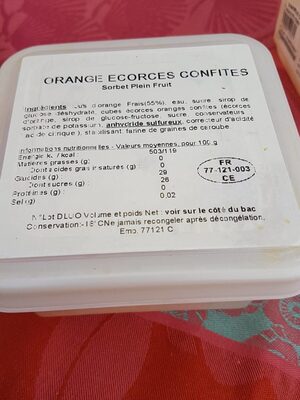 ORANGE ECORCES CONFITES
Sorbet Plein Fruit
Ingrédients : Jus d'orange Frais(55%), eau, sucre, sirop de
glucose déshydraté, cubes écorces oranges confites (écorces
d'orange, sirop de glucose-fructose, sucre, conservateurs :
sorbate de potassium), anhydride sulfureux, correcteur d'acidité :
acide citrique), stabilisant: farine de graines de caroube
Informations nutritionnelles - Valeurs moyennes, pour 100 g
Energie kj / kcal : 503/119
Matières grasses (g) : 0
Dont acides gras insaturés (g) 0
Glucides (g) : 29
Dont sucres (g) : 26
Protéines (g) : 0
Sel (g) 0,02
FR
77-121-003
CE
N°Lot DLUO Volume et poids Net : voir sur le côté du bac
Conservation:-18°C Ne jamais recongeler après décongélation.
Emb. 77121 C